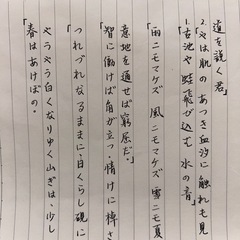 道を説く君」
2. やは肌の あつき血汐に 触れも見
1. 古池や 蛙飛び込む 水の音」
「雨ニモマケズ 風ニモマケズ 雪ニモ夏
意地を通せば窮屈だ。
「智に働けば角が立つ。情けに棹さ
つれづれなるままに、日くらし硯に
やうやう白くなりゆく山ぎは、少し
「春はあけぼの。